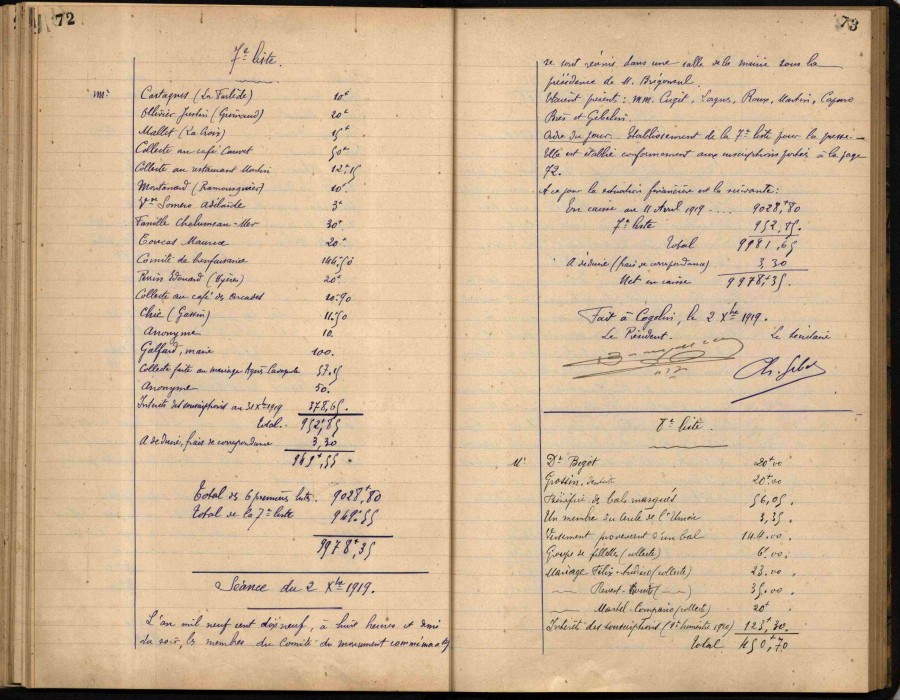 72
7e liste.
Mr Castagnes (La Farlède) 10f
Ollivier Justin (Grimaud) 20f
Mallet (La Croix) 15f
Collecte au café Cauvet 50f
Collecte au restaurant Martin 12f15
Montanard (Ramousquier) 10f
Vve Somero Adélaïde 3f
Famille Chalumeau-Mer 30f
Coucas Maurice 20f
Comité de bienfaisance 146f50
Perrin Edouard (Hyères) 20f
Collecte au café des Arcades 20f90
Chic (Gassin) 11f50
Anonyme 10.
Galfard, maire 100.
Collecte faite au mariage 57.15
Anonyme 50.
Intérêt des souscriptions au 31 Xbre 1919 378,65.
Total. 952f,85
A déduire, frais de correspondance 3,30
949f,55.
Total des 6 premières listes. 9028f,80
Total de la 7e liste 949f55
9978f,35
Séance du 2 Xbre 1919.
L'an mil neuf cent dix neuf, à huit heures et demi
du soir, les membres du Comité du monument commémoratif
73
se sont réunis dans une salle de la mairie sous la
présidence de M.
Etaient présents : MM. Cugit, Roux, Martin,
et Gibelin.
Ordre du jour. Etablissement de la 7e liste pour la presse.
Elle est établie conformément aux inscriptions portées à la page
72.
A ce jour la situation financière est la suivante :
En caisse au 11 Avril 1919 .... 9028f,80
7e liste 952,85.
Total 9981,65
A déduire (frais de correspondance) 3,30
Net en caisse 9978f,35.
Fait à Cogolin, le 2 Xbre 1919.
Le Président. Le Secrétaire
8e liste.
Mr Dr Bigot 20f00
Grossin, dentiste 20f00
Bénéfice de bals masqués 56,05.
Un membre du Cercle de l'Union 3,35.
Versement provenant d'un bal 149.00.
Groupe de fillettes (collecte) 6f.00.
Mariage Félix-Andrieu (collecte) 23.00.
35.00.
Martel-Companio (collecte) 20f
Intérêt des souscriptions (1er semestre 1920) 123f,30.
Total 450f,70